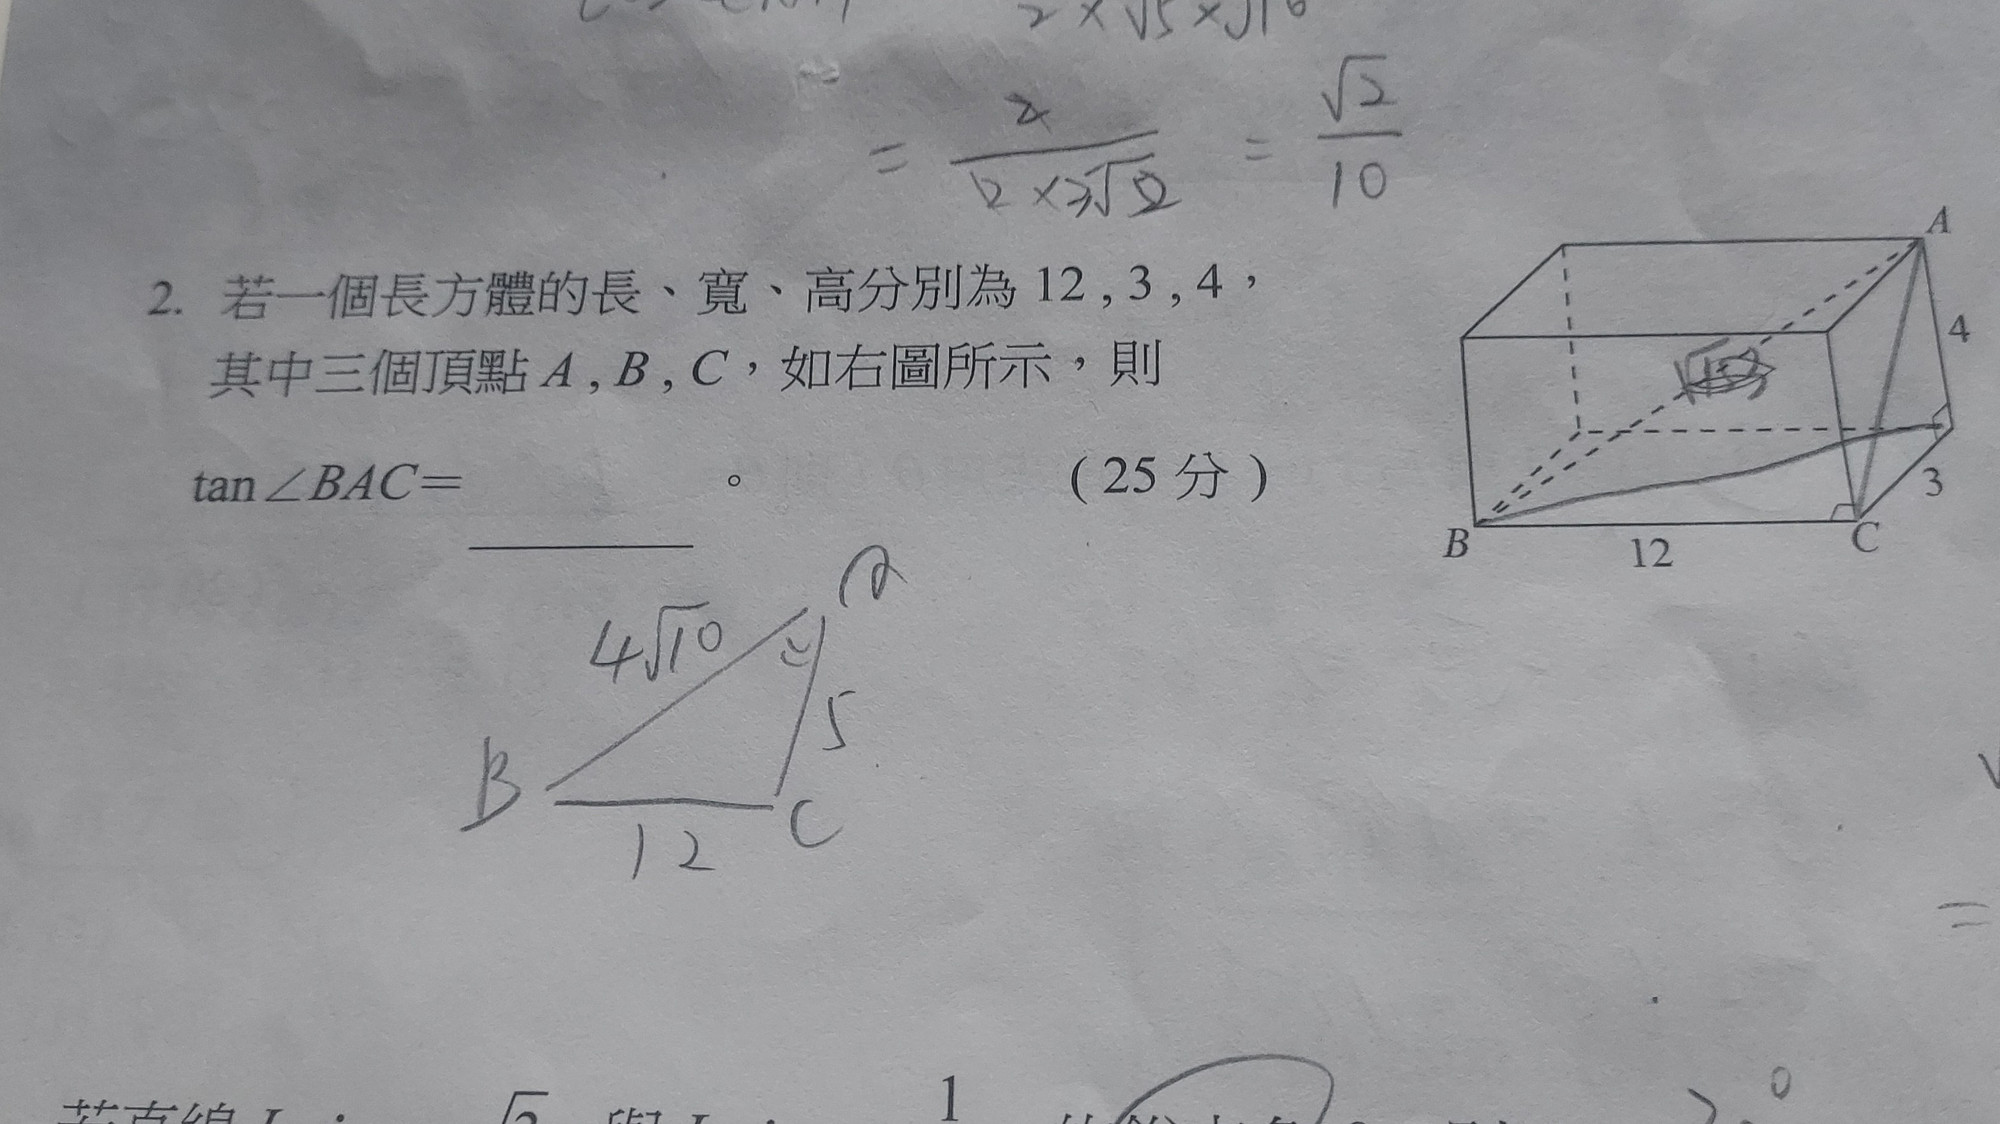 2 × √5 × √10
= 2 / 2 × = √2 / 10
2. 若一個長方體的長、寬、高分別為 12 , 3 , 4，
其中三個頂點 A , B , C，如右圖所示，則
tan∠BAC= 。 ( 25 分 )
A
4
3
B
12
C
4√10
5
B
C
12
=
0
1